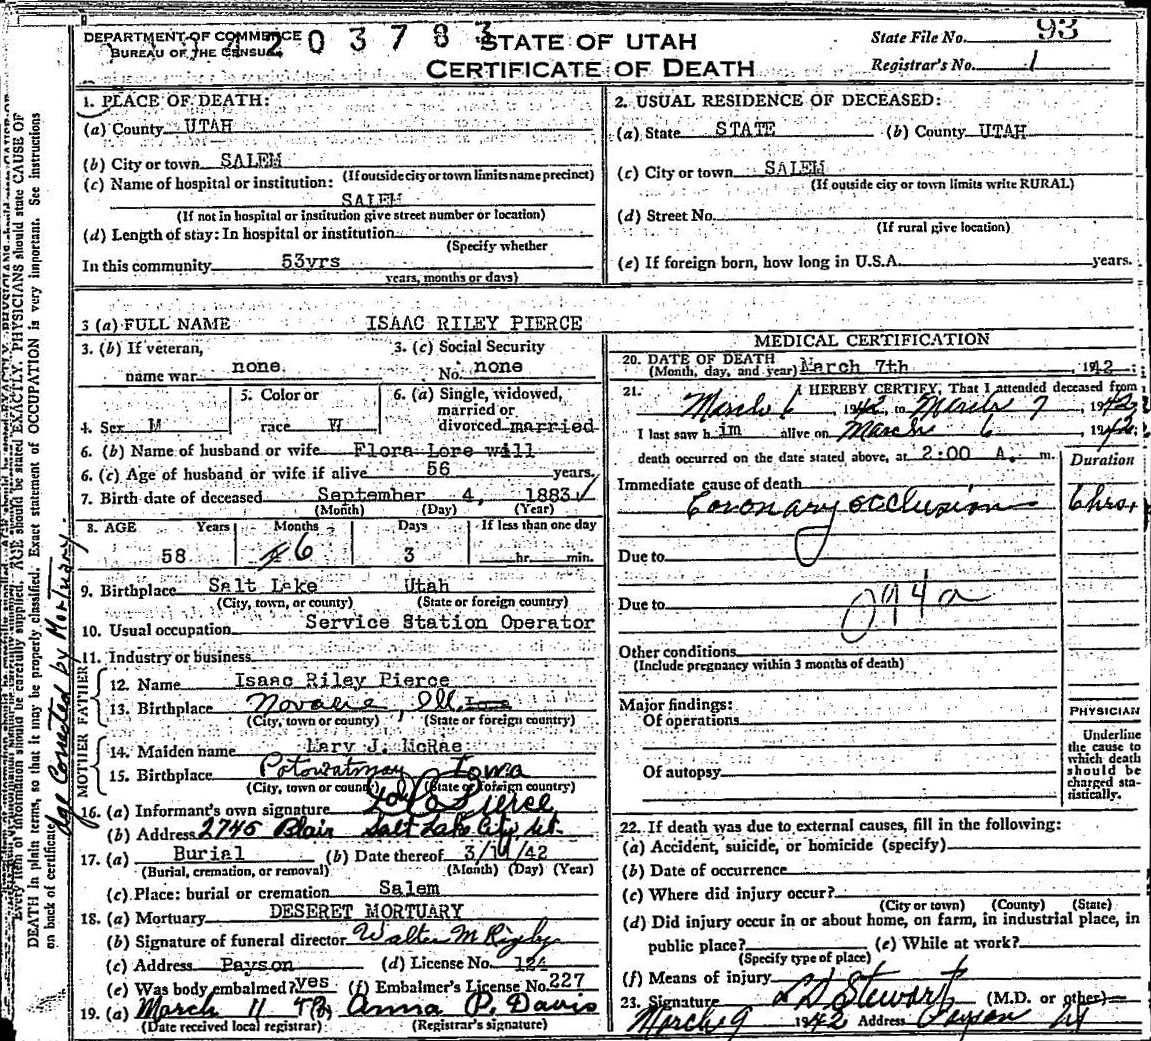 DEPARTMENT OF COMMERCE
BUREAU OF THE CENSUS
203783
STATE OF UTAH
CERTIFICATE OF DEATH
State File No. 93
Registrar's No. 1
1. PLACE OF DEATH:
(a) County UTAH
(b) City or town SALEM
(If outside city or town limits name precinct)
(c) Name of hospital or institution:
SALEM
(If not in hospital or institution give street number or location)
(d) Length of stay: In hospital or institution
(Specify whether
In this community 53yrs
years, months or days)
2. USUAL RESIDENCE OF DECEASED:
(a) State STATE (b) County UTAH
(c) City or town SALEM
(If outside city or town limits write RURAL)
(d) Street No.
(If rural give location)
(e) If foreign born, how long in U.S.A. years.
3 (a) FULL NAME ISAAC RILEY PIERCE
3. (b) If veteran, name war none
3. (c) Social Security No. none
4. Sex M
5. Color or race W
6. (a) Single, widowed, married or divorced married
6. (b) Name of husband or wife Flora Lore will
6. (c) Age of husband or wife if alive 56 years.
7. Birth date of deceased September 4, 1883
(Month) (Day) (Year)
8. AGE Years Months Days If less than one day
58 6 3 hr. min.
9. Birthplace Salt Lake Utah
(City, town, or county) (State or foreign country)
10. Usual occupation Service Station Operator
11. Industry or business
FATHER
12. Name Isaac Riley Pierce
13. Birthplace , Ill. Iowa
(City, town or county) (State or foreign country)
MOTHER
14. Maiden name Mary J. McRae
15. Birthplace Iowa
(City, town or county) (State or foreign country)
16. (a) Informant's own signature Pierce
(b) Address 2745 Blair Salt Lake City Ut.
17. (a) Burial (b) Date thereof 3/11/42
(Burial, cremation, or removal) (Month) (Day) (Year)
(c) Place: burial or cremation Salem
18. (a) Mortuary DESERET MORTUARY
(b) Signature of funeral director Walter M Rigby
(c) Address Payson (d) License No. 124
(e) Was body embalmed? yes (f) Embalmer's License No. 227
19. (a) March 11 42 (b) Anna P. Davis
(Date received local registrar) (Registrar's signature)
MEDICAL CERTIFICATION
20. DATE OF DEATH
(Month, day, and year) March 7th, 1942
21. I HEREBY CERTIFY, That I attended deceased from
March 6, 1942, to March 7, 1942
I last saw him alive on March 6, 1942
death occurred on the date stated above, at 2:00 A. m.
Duration
Immediate cause of death
Coronary occlusion 6 hrs.
Due to
Due to 094a
Other conditions
(Include pregnancy within 3 months of death)
Major findings:
Of operations
Of autopsy
PHYSICIAN
Underline
the cause to
which death
should be
charged sta-
tistically.
22. If death was due to external causes, fill in the following:
(a) Accident, suicide, or homicide (specify)
(b) Date of occurrence
(c) Where did injury occur?
(City or town) (County) (State)
(d) Did injury occur in or about home, on farm, in industrial place, in
public place? (e) While at work?
(Specify type of place)
(f) Means of injury
23. Signature L D Stewart (M.D. or other)
March 9 1942 Address Payson Ut
Every item of information should be carefully supplied. AGE should be stated EXACTLY. PHYSICIANS should state CAUSE OF
DEATH in plain terms, so that it may be properly classified. Exact statement of OCCUPATION is very important. See instructions
on back of certificate.
Age Corrected by Mortuary.